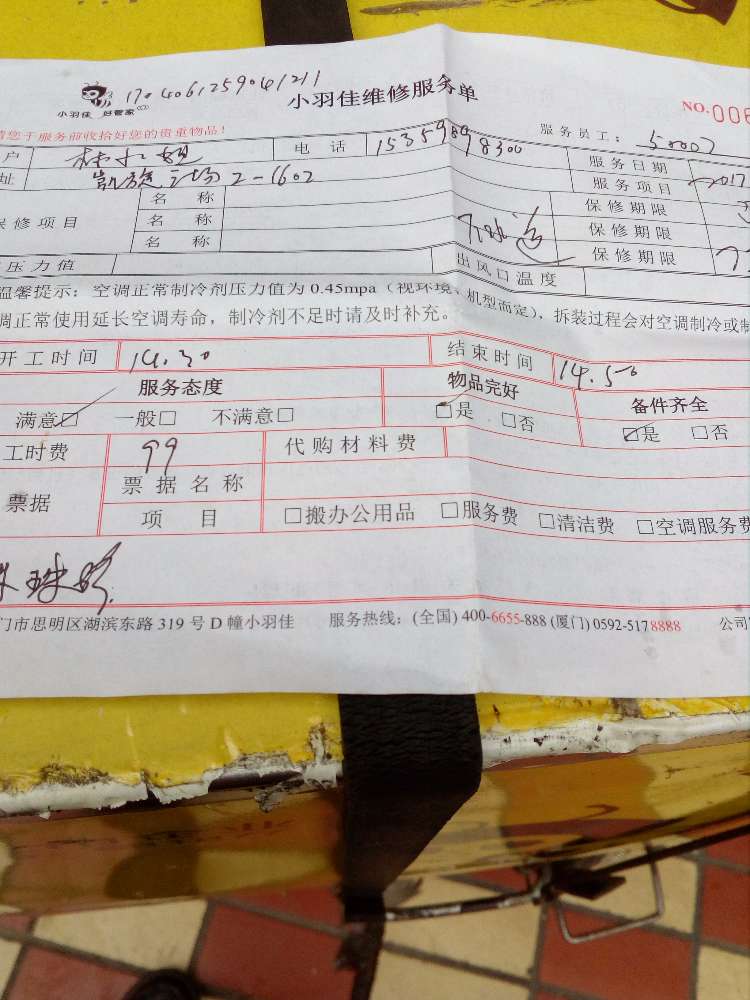 小羽佳 好管家 170406125904 1211
小羽佳维修服务单
NO.006
请您于服务前收拾好您的贵重物品！
服务员工：50007
户 电 话 15359898300 服务日期 2017
址 凯旋广场2-1602 服务项目
保修项目 名 称 保修期限
名 称 保修期限
名 称 保修期限
压力值 出风口温度
温馨提示：空调正常制冷剂压力值为 0.45mpa（视环境、机型而定），拆装过程会对空调制冷或制
调正常使用延长空调寿命，制冷剂不足时请及时补充。
开工时间 14.30 结束时间 14.50
服务态度 物品完好 备件齐全
满意☑ 一般□ 不满意□ ☑是 □否 ☑是 □否
工时费 99 代购材料费
票据 票据名称
项 目 □搬办公用品 □服务费 □清洁费 □空调服务费
门市思明区湖滨东路 319 号 D 幢小羽佳 服务热线：(全国) 400-6655-888 (厦门) 0592-5178888 公司